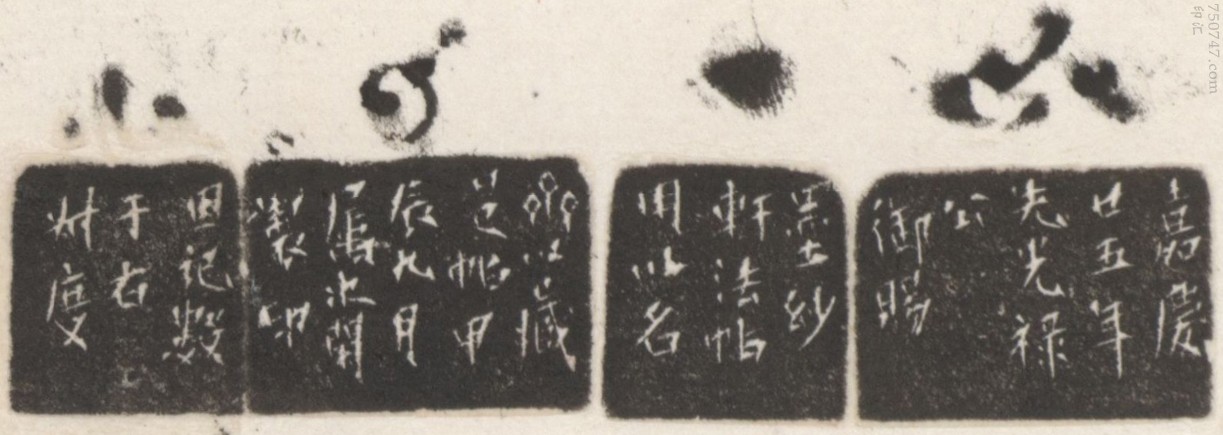 嘉慶
廿五年
先光祿
公
御賜
墨玅
軒法帖
用以名
齋以藏
是帖甲
辰九月
屬次閑
製印
因記數
于右
叔度
750747.com
印汇